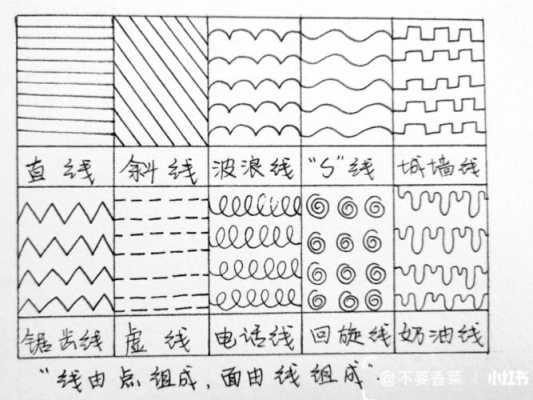 直线 斜线 波浪线 “S”线 城墙线
锯齿线 虚线 电话线 回旋线 奶油线
“线由点组成，面由线组成”.
@不要香菜 小红书